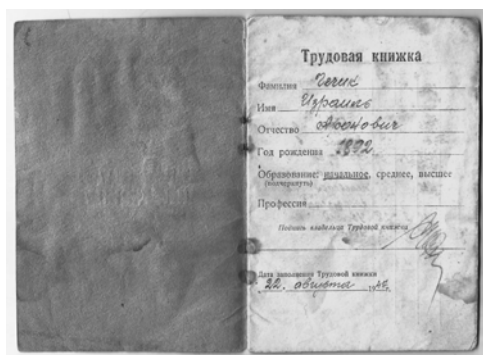 Трудовая книжка
Фамилия Чечик
Имя Израиль
Отчество
Год рождения 1892
Образование: начальное, среднее, высшее
(подчеркнуть)
Профессия
Подпись владельца Трудовой книжки
Дата заполнения Трудовой книжки
22. августа 19